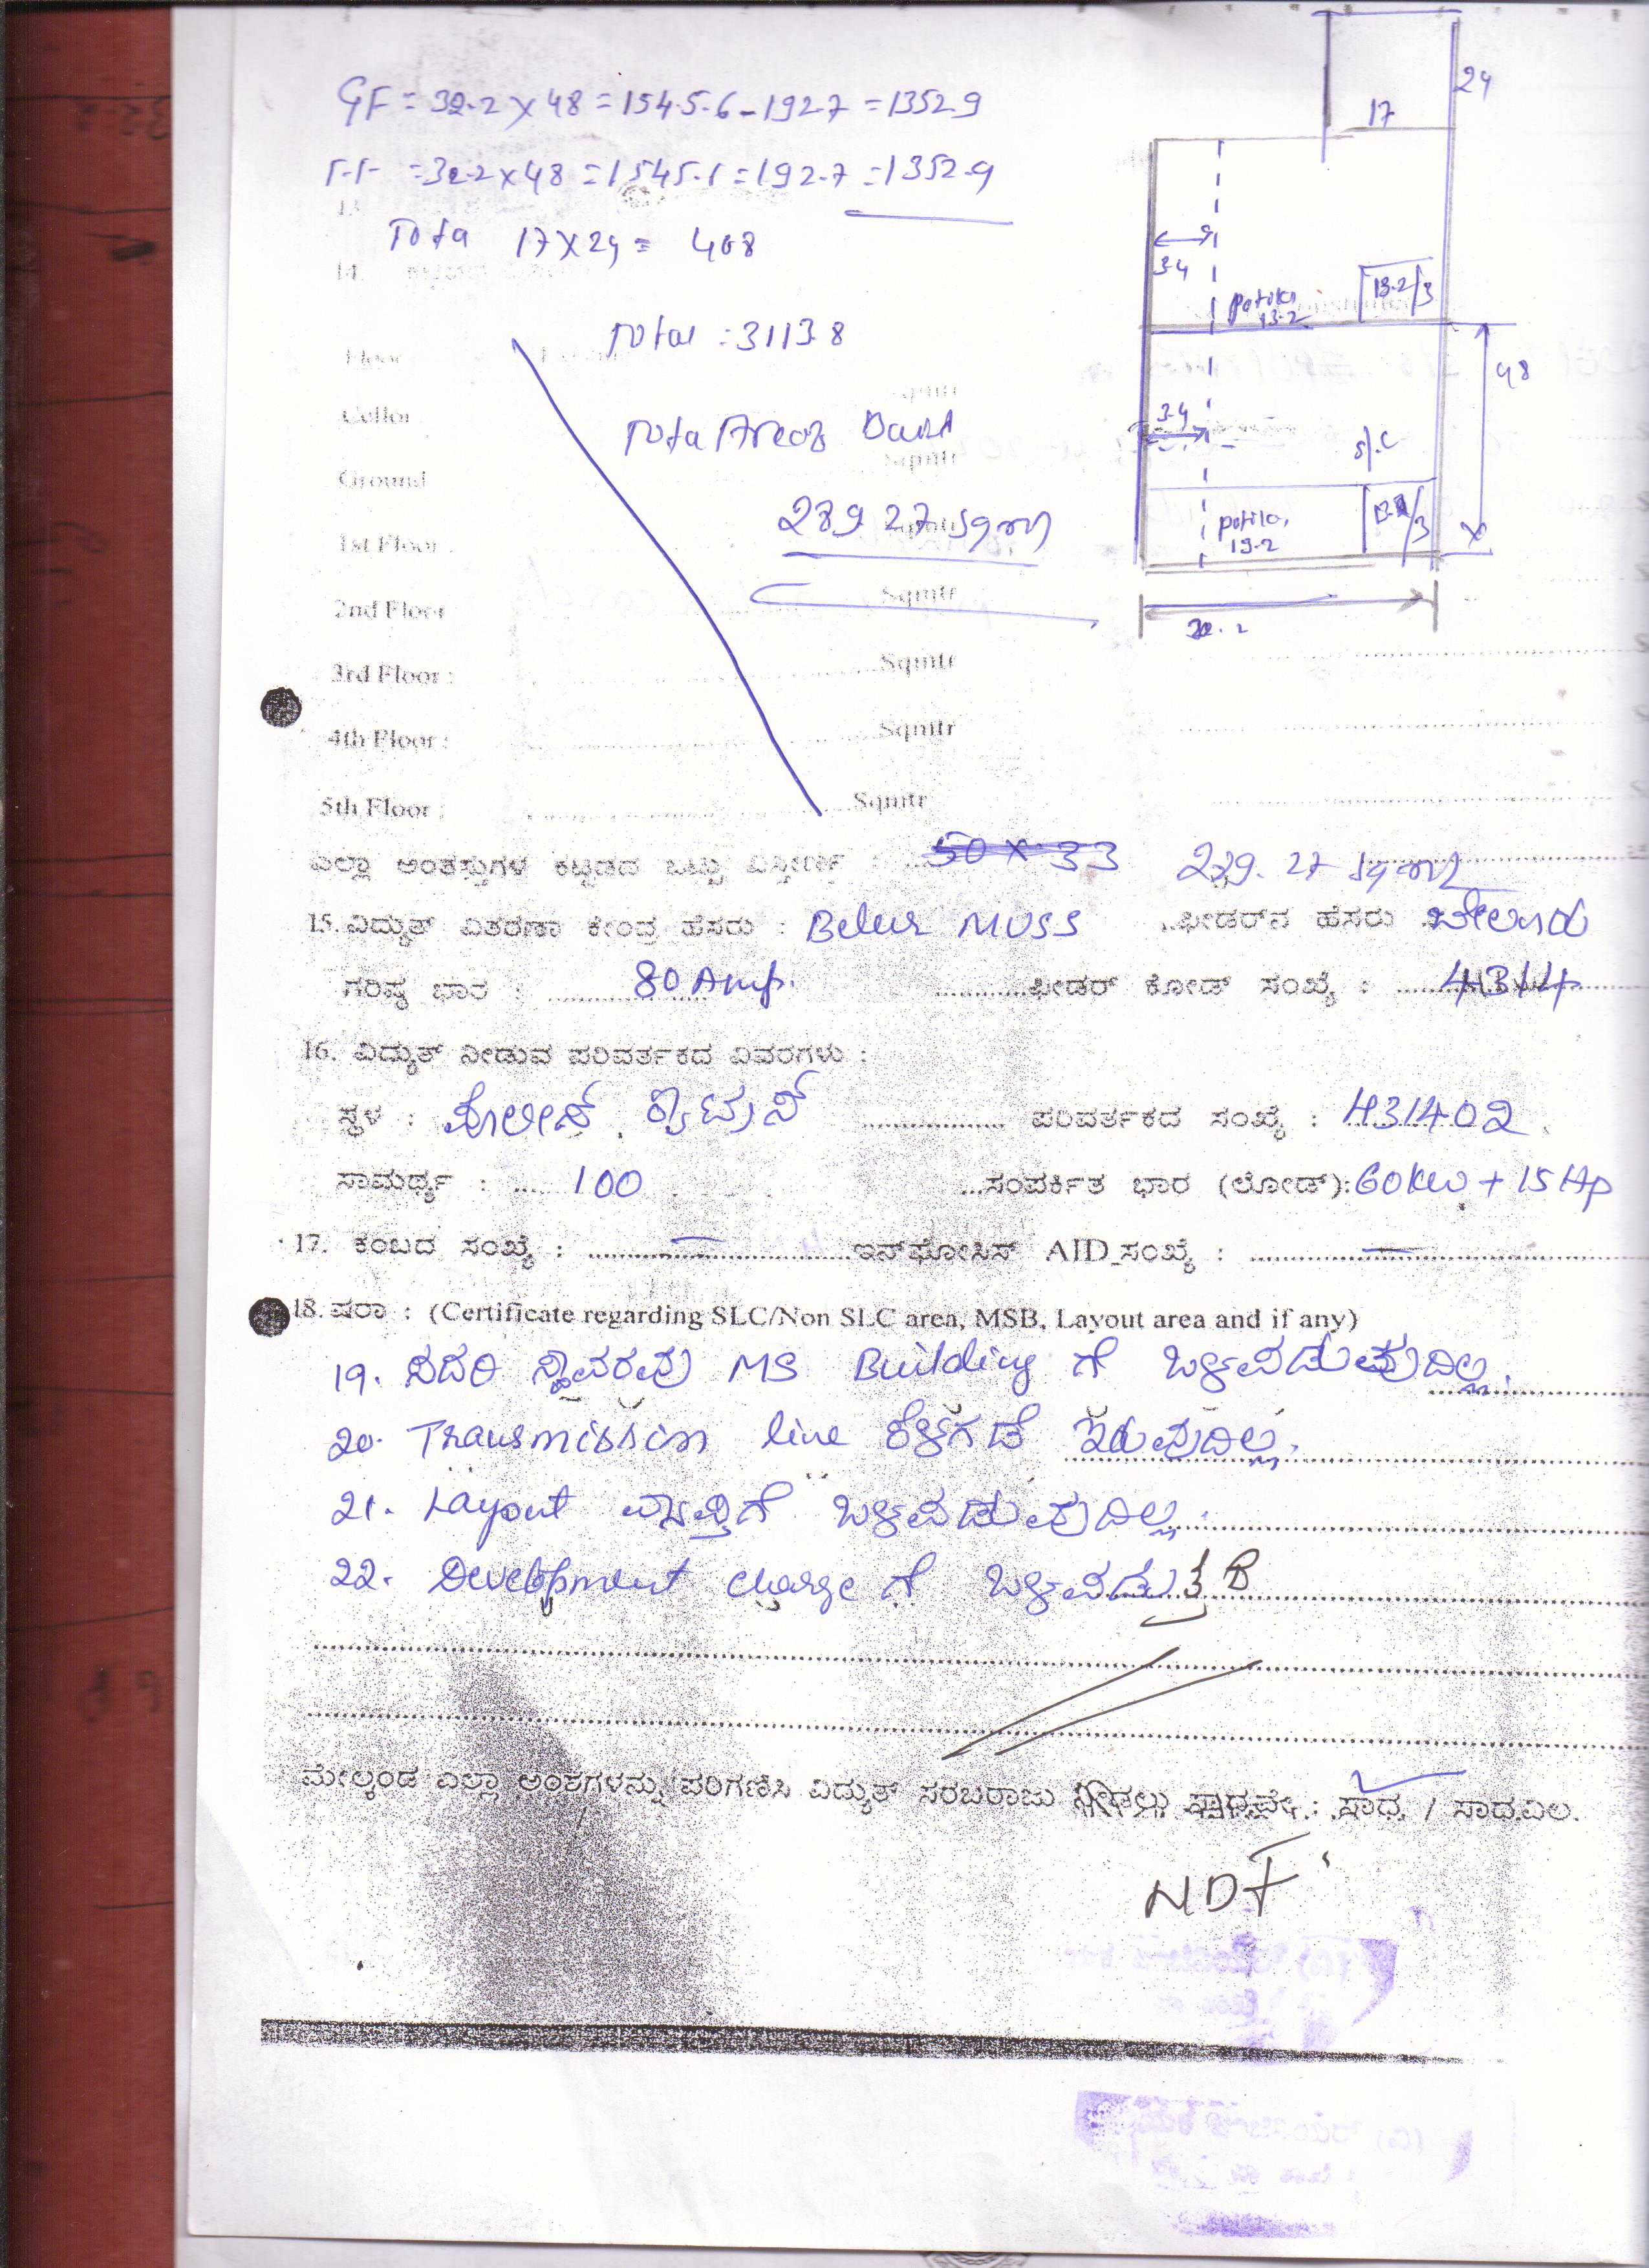 GF = 32.2 × 48 = 1545.6 - 192.7 = 1352.9
F.F = 32.2 × 48 = 1545.6 = 192.7 = 1352.9
Tota 17 × 24 = 408
Total = 3113.8
Tota Area
289.27 sqm
24
17
3.4
13.2/3
13.2
48
3.4
S/C
13.2
Floor
Cellor
Ground
1st Floor :
2nd Floor
Sqmtr
3rd Floor : Sqmtr
4th Floor : Sqmtr
5th Floor : Sqmtr
ಎಲ್ಲಾ ಅಂತಸ್ತುಗಳ ಕಟ್ಟಡದ ಒಟ್ಟು ವಿಸ್ತೀರ್ಣ : 50 × 33 289.27 sqm
15. ವಿದ್ಯುತ್ ವಿತರಣಾ ಕೇಂದ್ರ ಹೆಸರು : Belur MUSS ಫೀಡರ್‌ನ ಹೆಸರು
ಗರಿಷ್ಠ ಭಾರ : 80 Amp. ಫೀಡರ್ ಕೋಡ್ ಸಂಖ್ಯೆ : 4314
16. ವಿದ್ಯುತ್ ನೀಡುವ ಪರಿವರ್ತಕದ ವಿವರಗಳು :
ಸ್ಥಳ : ಪೋಲೀಸ್ ಕ್ವಾಟ್ರಸ್ ಪರಿವರ್ತಕದ ಸಂಖ್ಯೆ : 431402
ಸಾಮರ್ಥ್ಯ : 100 ಸಂಪರ್ಕಿತ ಭಾರ (ಲೋಡ್): 60 kw + 15 Hp
17. ಕಂಬದ ಸಂಖ್ಯೆ : — ಇನ್‌ಫೋಸಿಸ್ AID ಸಂಖ್ಯೆ : —
18. ಷರಾ : (Certificate regarding SLC/Non SLC area, MSB, Layout area and if any)
19. ಸದರಿ ಸ್ಥಾವರವು MS Building ಗೆ ಒಳಪಡುವುದಿಲ್ಲ.
20. Transmission line ಕೆಳಗಡೆ ಇರುವುದಿಲ್ಲ.
21. Layout ವ್ಯಾಪ್ತಿಗೆ ಒಳಪಡುವುದಿಲ್ಲ.
22. Development charge ಗೆ ಒಳಪಡುತ್ತದೆ
ಮೇಲ್ಕಂಡ ಎಲ್ಲಾ ಅಂಶಗಳನ್ನು ಪರಿಗಣಿಸಿ ವಿದ್ಯುತ್ ಸರಬರಾಜು ನೀಡಲು ಸಾಧ್ಯವೇ : ಸಾಧ್ಯ / ಸಾಧ್ಯವಿಲ್ಲ.
NDF